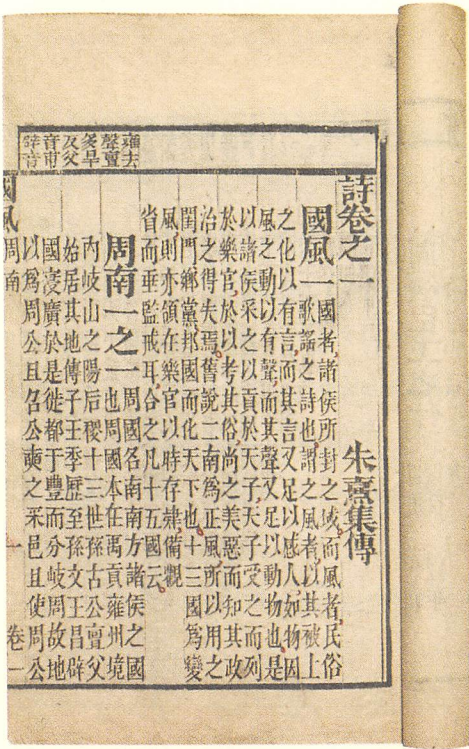 雍去
聲亶
多旱
反父
音甫
辟音
詩卷之一 朱熹集傳
國風一 國者諸侯所封之域而風者民俗
歌謠之詩也謂之風者以其被上
之化以有言而其言又足以感人如物因
風之動以有聲而其聲又足以動物也是
以諸侯采之以貢於天子天子受之而列
於樂官於以考其俗尚之美惡而知其政
治之得失焉舊說二南爲正風所以用之
閨門鄉黨邦國而化天下也十三國爲變
風則亦領在樂官以時存肄備觀
省而垂監戒耳合之凡十五國云
周南一之一 周國名南南方諸侯之國
也周國本在禹貢雍州境
內岐山之陽后稷十三世孫古公亶父
始居其地傳子王季歷至孫文王昌辟
國寖廣於是徙都于豐而分岐周故地
以爲周公旦召公奭之采邑且使周公
國風 周南 一 卷一